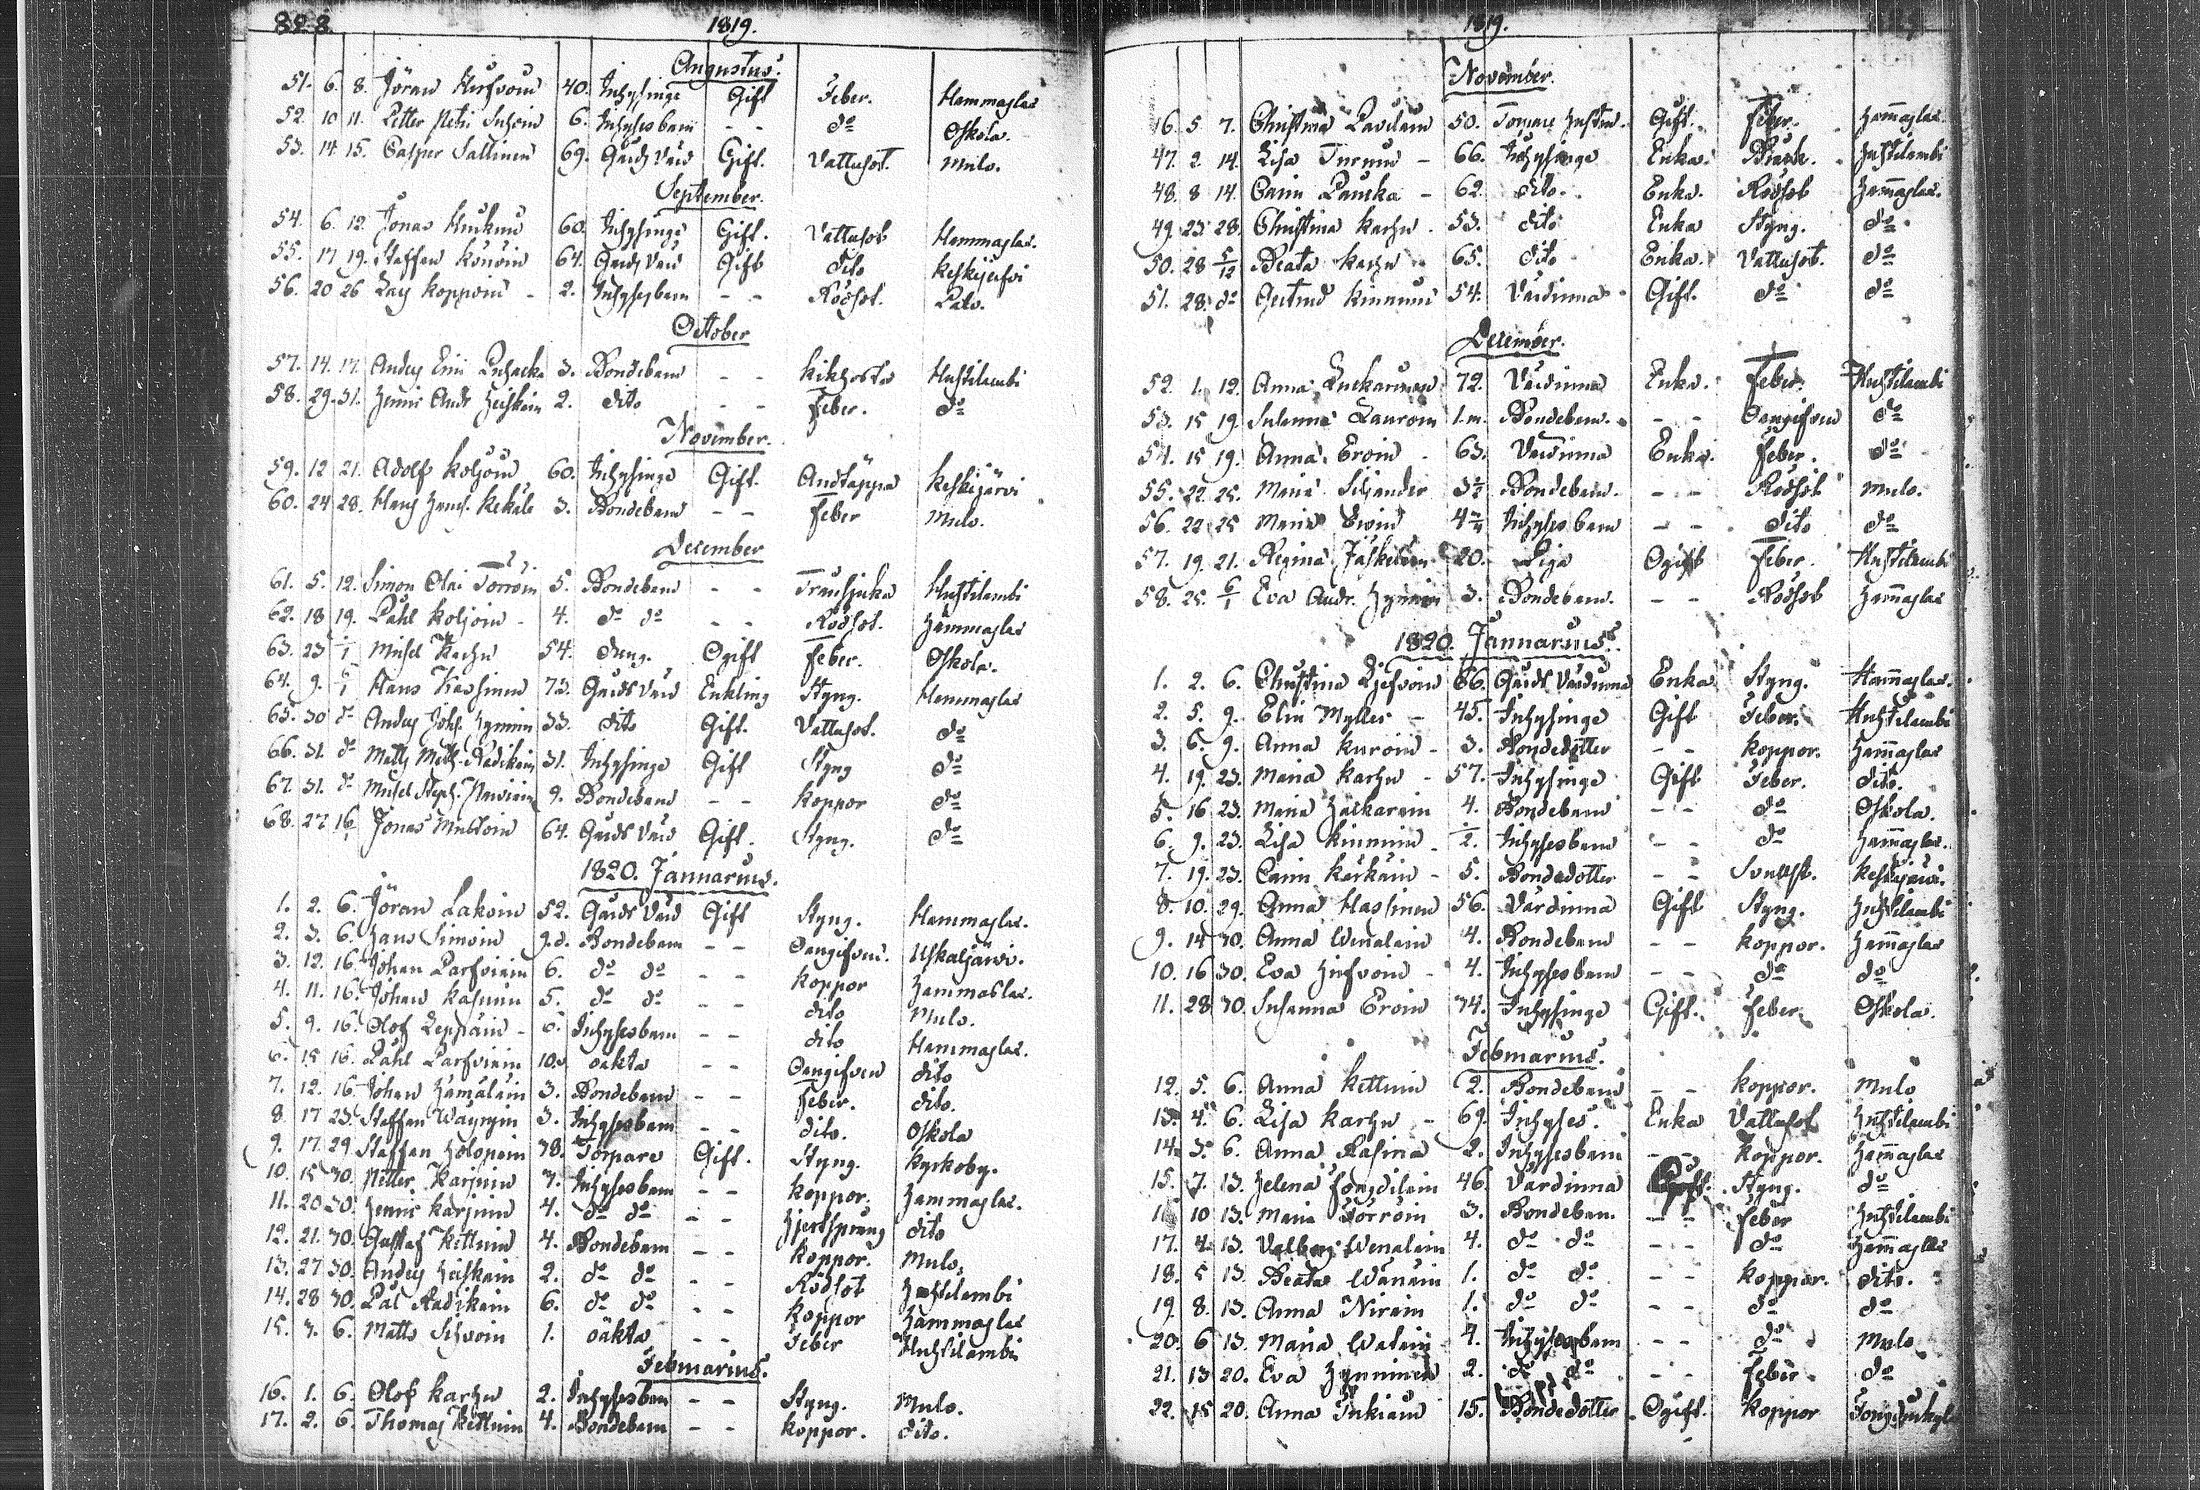 828
1819.
Augustus.
51. 6. 8. Jöran 40. Inhysinge Gift Feber. Hammaslax
52. 10 11. Petter Petri 6. Inhysesbarn - - do Oskola.
53. 14 15. Casper Sallinen 69. Gårds Värd Gift. Vattusot. Mulo.
September.
54. 6. 12. Jonas 60. Inhysinge Gift. Vattusot Hammaslax.
55. 17 19. Staffan 64. Gårds Värd Gift dito Keskijerfvi
56. 20 26 Lars Koppoin - 2. Inhysesbarn - - Rödsot.
October
57. 14. 17. Anders 3. Bondebarn - - Kikhosta Huhtilambi
58. 29. 31. Henric Andr Heiskain 2. dito - - Feber. do
November.
59. 12 21. Adolf Koljoin 60. Inhysinge Gift. Andtäppa Keskijärvi
60. 24 28. Hans Kekäle 3. Bondebarn - - Feber Mulo.
December
61. 5. 12. Simon Olai Torroin 5. Bondebarn - - Huhtilambi
62. 18 19. Påhl Koljoin - 4. do do - - Rödsot. Hammaslax
63. 23 Michel Karhu 54. Dreng. Ogift Feber. Oskola.
64. 9. 6/1 Hans Kassinen 73. Gårds Värd Enkling Styng. Hammaslax
65. 30 do Anders Joh. Hynnin 33. dito Gift. Vattusot. do
66. 31. do Matts Matts. Radikain 31. Inhysinge Gift Styng do
67. 31. do Michel Steph. 9. Bondebarn - - Koppor do
68. 27 16/1 Jonas Mustoin 64. Gårds Värd Gift. Styng. do
1820. Januarius.
1. 2. 6. Jöran Lakoin 52. Gårds Värd Gift Styng. Hammaslax.
2. 3. 6. Hans Simoin 9.d. Bondebarn - - Oangifven. Uskaljärvi.
3. 12. 16. Johan Parfviain 6. do do - - Koppor Hammaslax.
4. 11. 16. Johan Kasurin 5. do do - - dito Mulo.
5. 9. 16. Olof Leppäin - 6. Inhysesbarn - - dito Hammaslax.
6. 15 16. Påhl Parfviain 10.d oäkta - - Oangifven dito
7. 12. 16. Johan Hämäläin 3. Bondebarn - - Feber. dito.
8. 17 23. Staffan Wäyryin 3. Inhysesbarn - - dito. Oskola
9. 17. 29. Staffan Holopain 38. Torpare Gift. Styng. Kyrkoby.
10. 15 30. Petter Karjuin 3. Inhysesbarn - - Koppor. Hammaslax.
11. 20 30. Henric Karjuin 4. do do - - Hjertsprång dito
12. 21. 30. Gustaf Kettuin 4. Bondebarn - - Koppor. Mulo.
13. 27 30. Anders Heiskain 2. do do - - Rödsot Huhtilambi
14. 28 30. Pål Radikain 6. do do - - Koppor Hammaslax
15. 3. 6. Matts Sihvoin 1. oäkta - - Feber Huhtilambi
Februarius.
16. 1. 6. Olof Karhu 2. Inhysesbarn - - Styng. Mulo.
17. 2. 6. Thomas Kettuin 4. Bondebarn - - Koppor. dito.
1819.
November.
46. 5 7. Christina 50. Torpare Gift. Feber. Hammaslax.
47. 2 14. Lisa Turuin - 66. Inhysinge Enka. Bråck. Huhtilambi
48. 8 14. Carin - 62. dito. Enka. Rödsot Hammaslax.
49. 23 28. Christina Karhu - 53. dito Enka Styng. do
50. 28 5/12 Beata Karhu 65. dito Enka. Vattusot. do
51. 28. do Gertrud Kinnuin 54. Värdinna Gift. do do
December.
52. 1. 12. Anna 72. Värdinna Enka. Feber. Huhtilambi
53. 15 19. Susanna Lauroin 1.m. Bondebarn. - - Oangifven do
54. 15 19. Anna Eroin - 63. Värdinna Enka. Feber. do
55. 22 25. Maria Siljander 3½ Bondebarn. - - Rödsot Mulo.
56. 22 25 Maria Eroin Inhysesbarn - - dito do
57. 19 21. Regina Jäskeläin 20. Piga Ogift Feber. Huhtilambi
58. 25. 6/1 Eva Andr. Hynnin 3. Bondebarn. - - Rödsot Hammaslax
1820. Januarius.
1. 2. 6. Christina 66. Gårds Värdinna Enka Styng. Hammaslax.
2. 5. 9. Elin Myller - 45. Inhysinge Gift Feber. Huhtilambi
3. 6. 9. Anna Kuroin - 3. Bondedotter - - Koppor. Hammaslax
4. 19. 23. Maria Karhu - 57. Inhysinge Gift Feber. dito.
5. 16 23. Maria 4. Bondebarn - - do Oskola.
6. 9. 23. Lisa Kinnuin - ½. Inhysesbarn - - do Hammaslax.
7. 19. 23. Carin Kärkäin - 5. Bondedotter - - Keskijärvi.
8. 10. 29. Anna Hassinen 56. Värdinna Gift Styng. Huhtilambi
9. 14 30. Anna Wenäläin 4. Bondebarn - - Koppor. Hammaslax
10. 16 30. Eva Hirfvoin - 4. Inhysesbarn - - do do
11. 28 30. Susanna Eroin 34. Inhysinge Gift. Feber Oskola.
Februarius.
12. 5. 6. Anna Kettuin 2. Bondebarn - - Koppor. Mulo
13. 4. 6. Lisa Karhu - 69. Inhyses. Enka Vattusot Huhtilambi
14. 3. 6. Anna Rasina 2. Inhysesbarn - - Koppor. Hammaslax
15. 7. 13. Helena 46. Värdinna Gift. Styng. do
10 13. Maria Torroin 3. Bondebarn. - - Feber Huhtilambi
17. 4. 13. Valborg Wenäläin 4. do do - - do Hammaslax
18. 5 13. Beata Wänäin 1. do do - - Koppor. dito.
19. 8. 13. Anna Nirain 1. do do - - do do
20. 6 13. Maria 4. Inhysesbarn - - do Mulo
21. 13 20. Eva Hynninen 2. do do - - Feber. do
22. 15 20. Anna Inkiäin 15. Bondedotter Ogift. Koppor